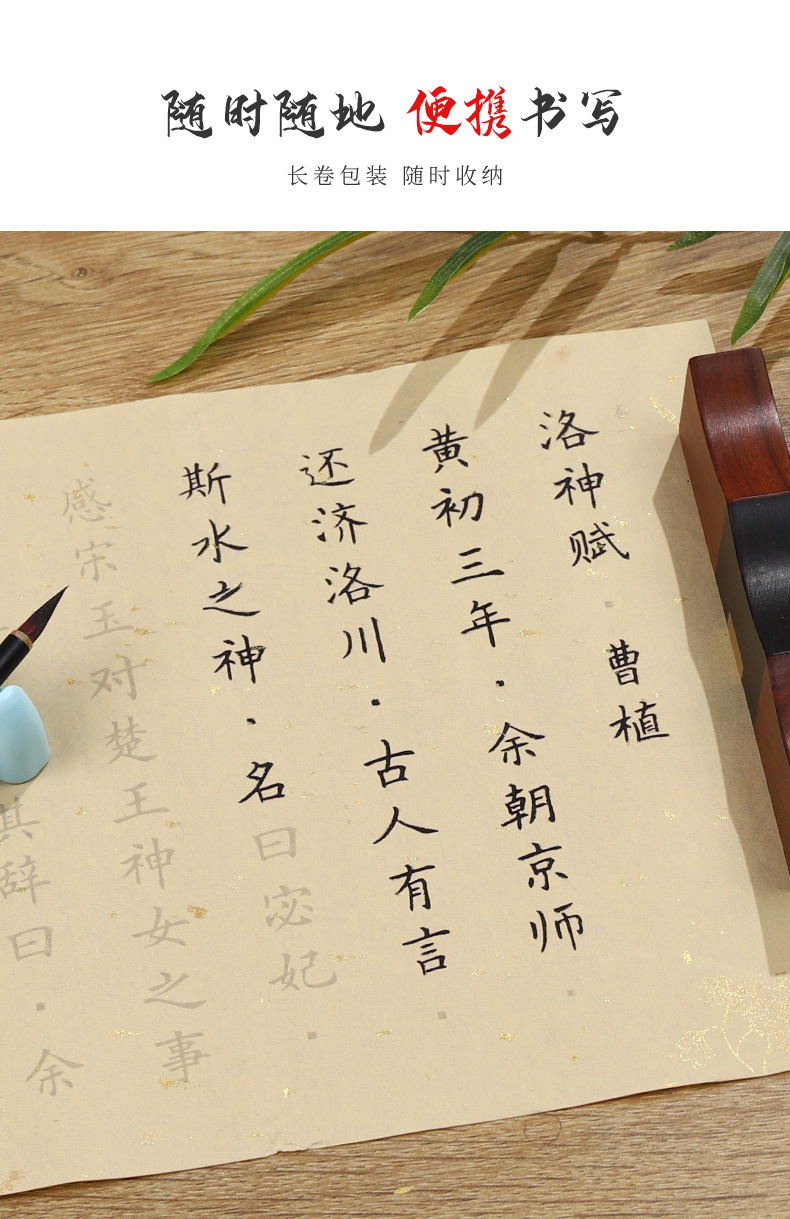 随时随地 便携书写
长卷包装 随时收纳
洛神赋 · 曹植
黄初三年·余朝京师·
还济洛川·古人有言·
斯水之神·名曰宓妃·
感宋玉对楚王神女之事
其辞曰·余